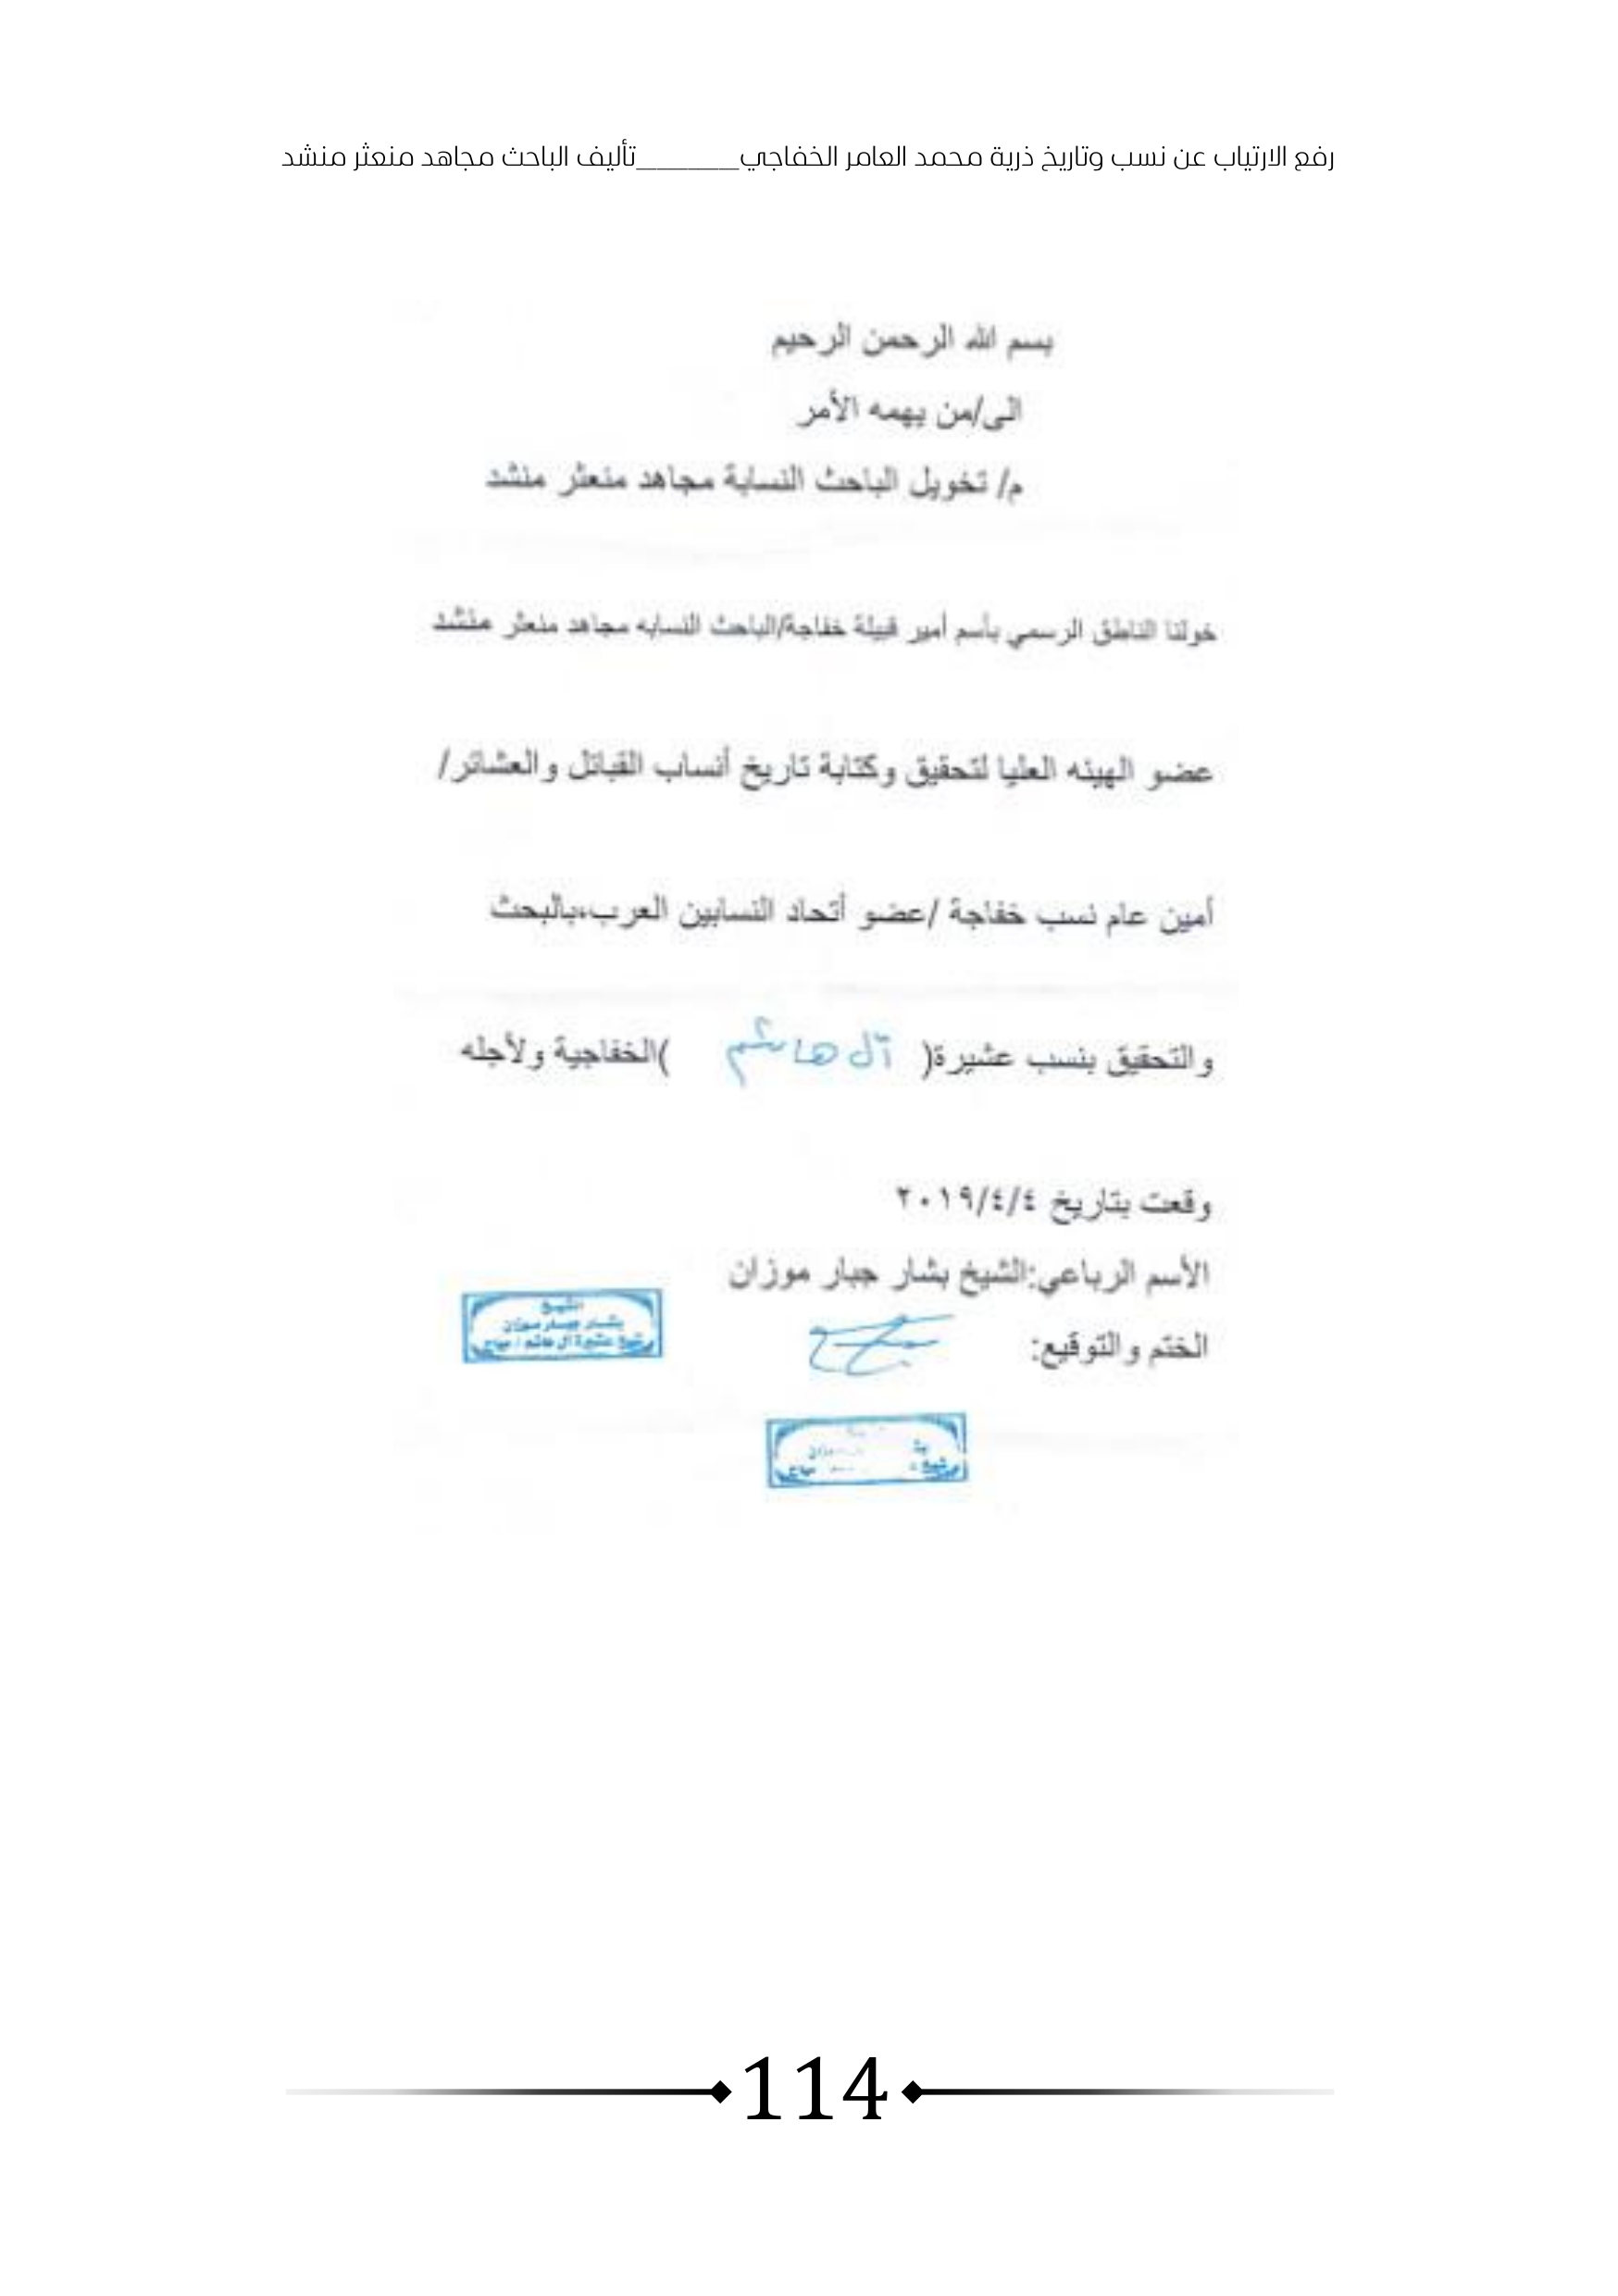 رفع الارتياب عن نسب وتاريخ ذرية محمد العامر الخفاجي________تأليف الباحث مجاهد منعثر منشد
بسم الله الرحمن الرحيم
الى/من يهمه الأمر
م/ تخويل الباحث النسابة مجاهد منعثر منشد
خولنا الناطق الرسمي بأسم أمير قبيلة خفاجة/الباحث النسابه مجاهد منعثر منشد
عضو الهيئه العليا لتحقيق وكتابة تاريخ أنساب القبائل والعشائر/
أمين عام نسب خفاجة /عضو أتحاد النسابين العرب،بالبحث
والتحقيق بنسب عشيرة( آل هاشم )الخفاجية ولأجله
وقعت بتاريخ ٢٠١٩/٤/٤
الأسم الرباعي:الشيخ بشار جبار موزان
الشيخ
بشار جبار موزان
شيخ عشيرة آل هاشم /
الختم والتوقيع:
114